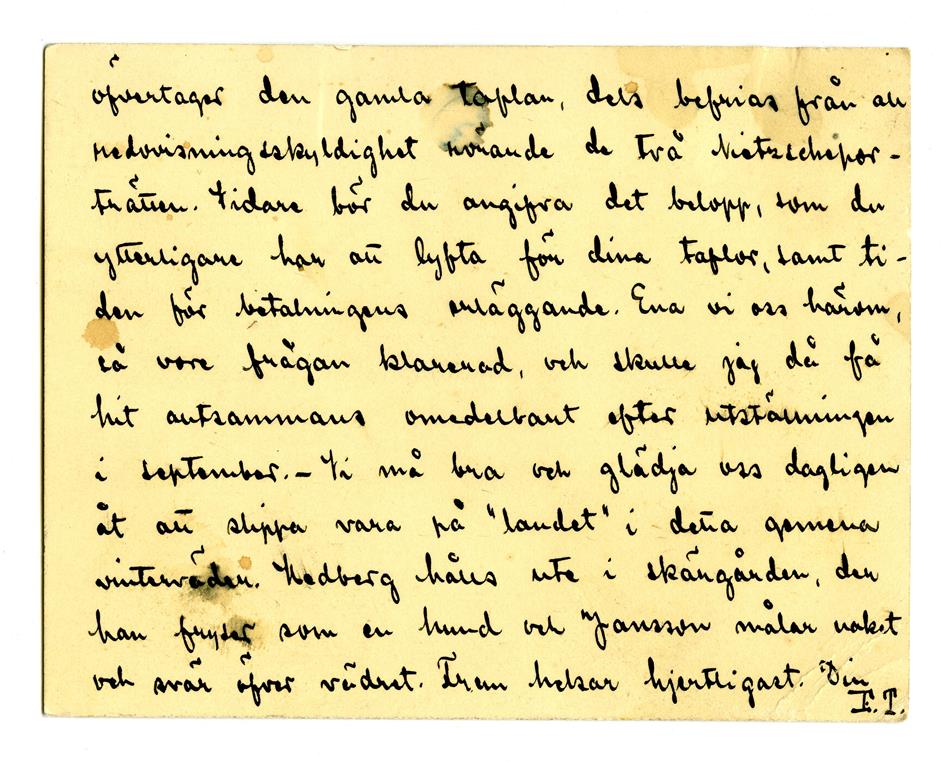 öfvertager den gamla taflan, dels befrias från all
redovisningsskyldighet rörande de två Nietzschepor-
trätten. Vidare bör du angifva det belopp, som du
ytterligare har att lyfta för dina taflor, samt ti-
den för betalningens erläggande. Ena vi oss härom,
så vore frågan klarerad, och skulle jag då få
hit alltsammans omedelbart efter utställningen
i september. – Vi må bra och glädja oss dagligen
åt att slippa vara på "landet" i detta gemena
vinterväder. Hedberg hålls ute i skärgården, der
han fryser som en hund och Jansson målar naket
och svär öfver vädret. Frun helsar hjertligast. Din
E.T.